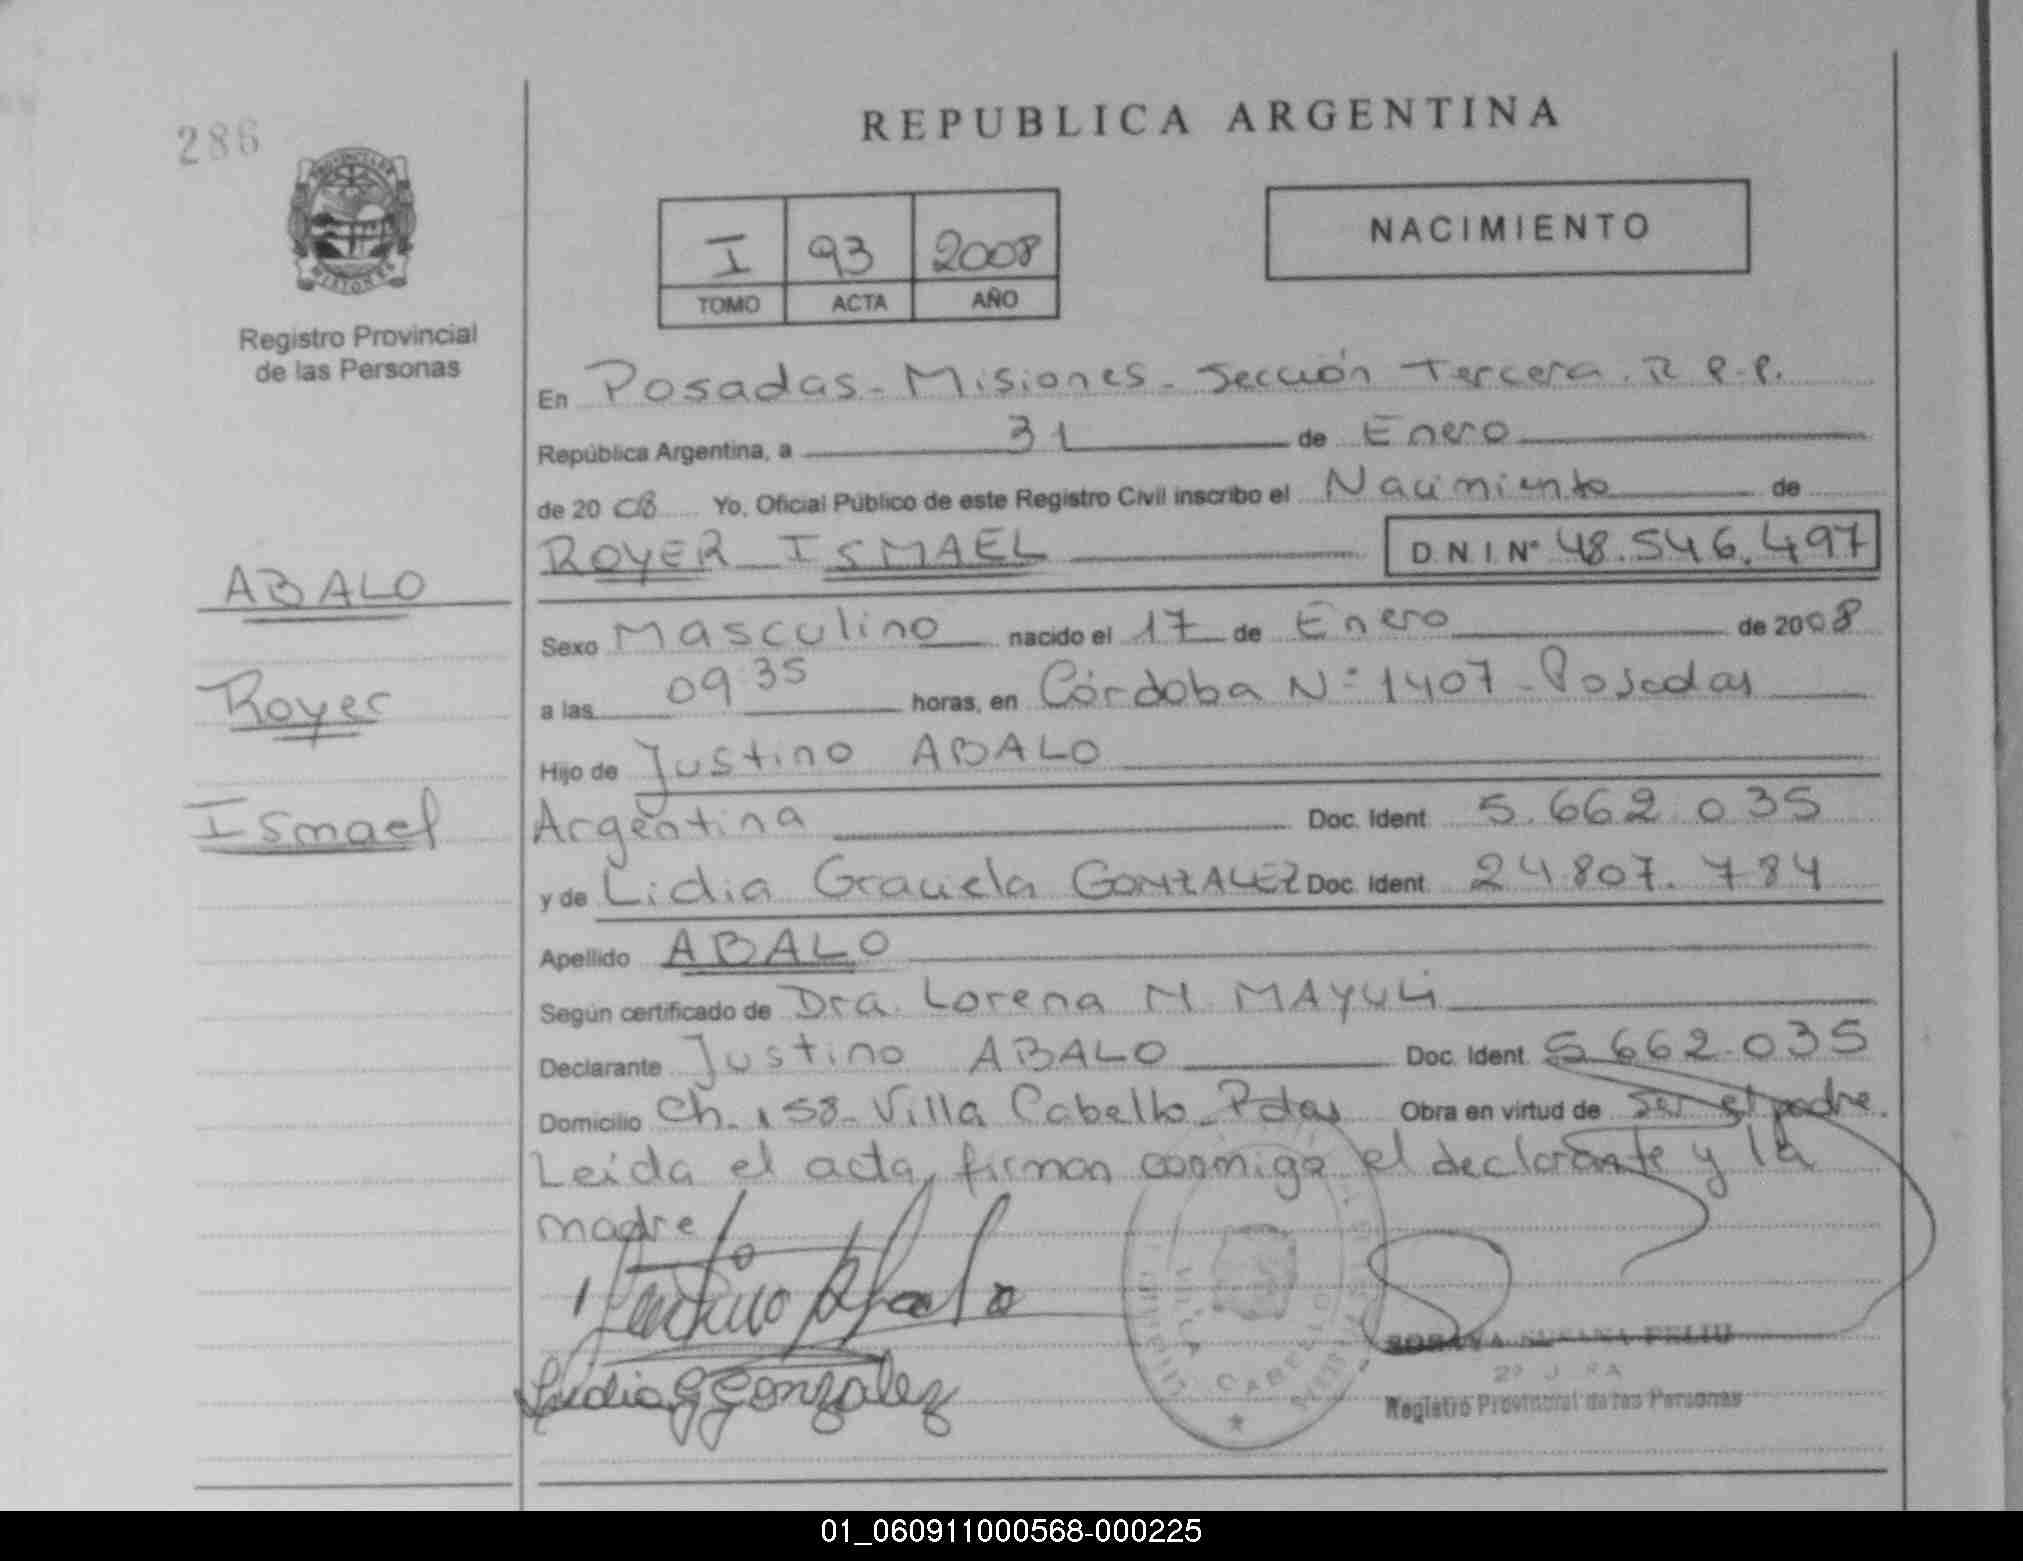 286
REPUBLICA ARGENTINA
NACIMIENTO
I 93 2008
TOMO ACTA AÑO
Registro Provincial
de las Personas
En Posadas - Misiones - Sección Tercera. R.P.P.
República Argentina, a 31 de Enero
de 2008 Yo, Oficial Público de este Registro Civil inscribo el Nacimiento de
ROYER ISMAEL D.N.I. Nº 48.546.497
ABALO
Royer
Ismael
Sexo Masculino nacido el 17 de Enero de 2008
a las 09 35 horas, en Córdoba Nº 1407 - Posadas
Hijo de Justino ABALO
Argentina Doc. Ident. 5.662.035
y de Lidia Graciela GONZALEZ Doc. Ident. 24.807.784
Apellido ABALO
Según certificado de Dra. Lorena M. MAYULI
Declarante Justino ABALO Doc. Ident. 5.662.035
Domicilio Ch. 158 - Villa Cabello - Pdas Obra en virtud de ser el padre.
Leída el acta, firman conmigo el declarante y la
madre
Justino Abalo
Lidia G Gonzalez
VILLA CABELLO
MISIONES
SUSANA FELIU
Registro Provincial de las Personas
01_060911000568-000225